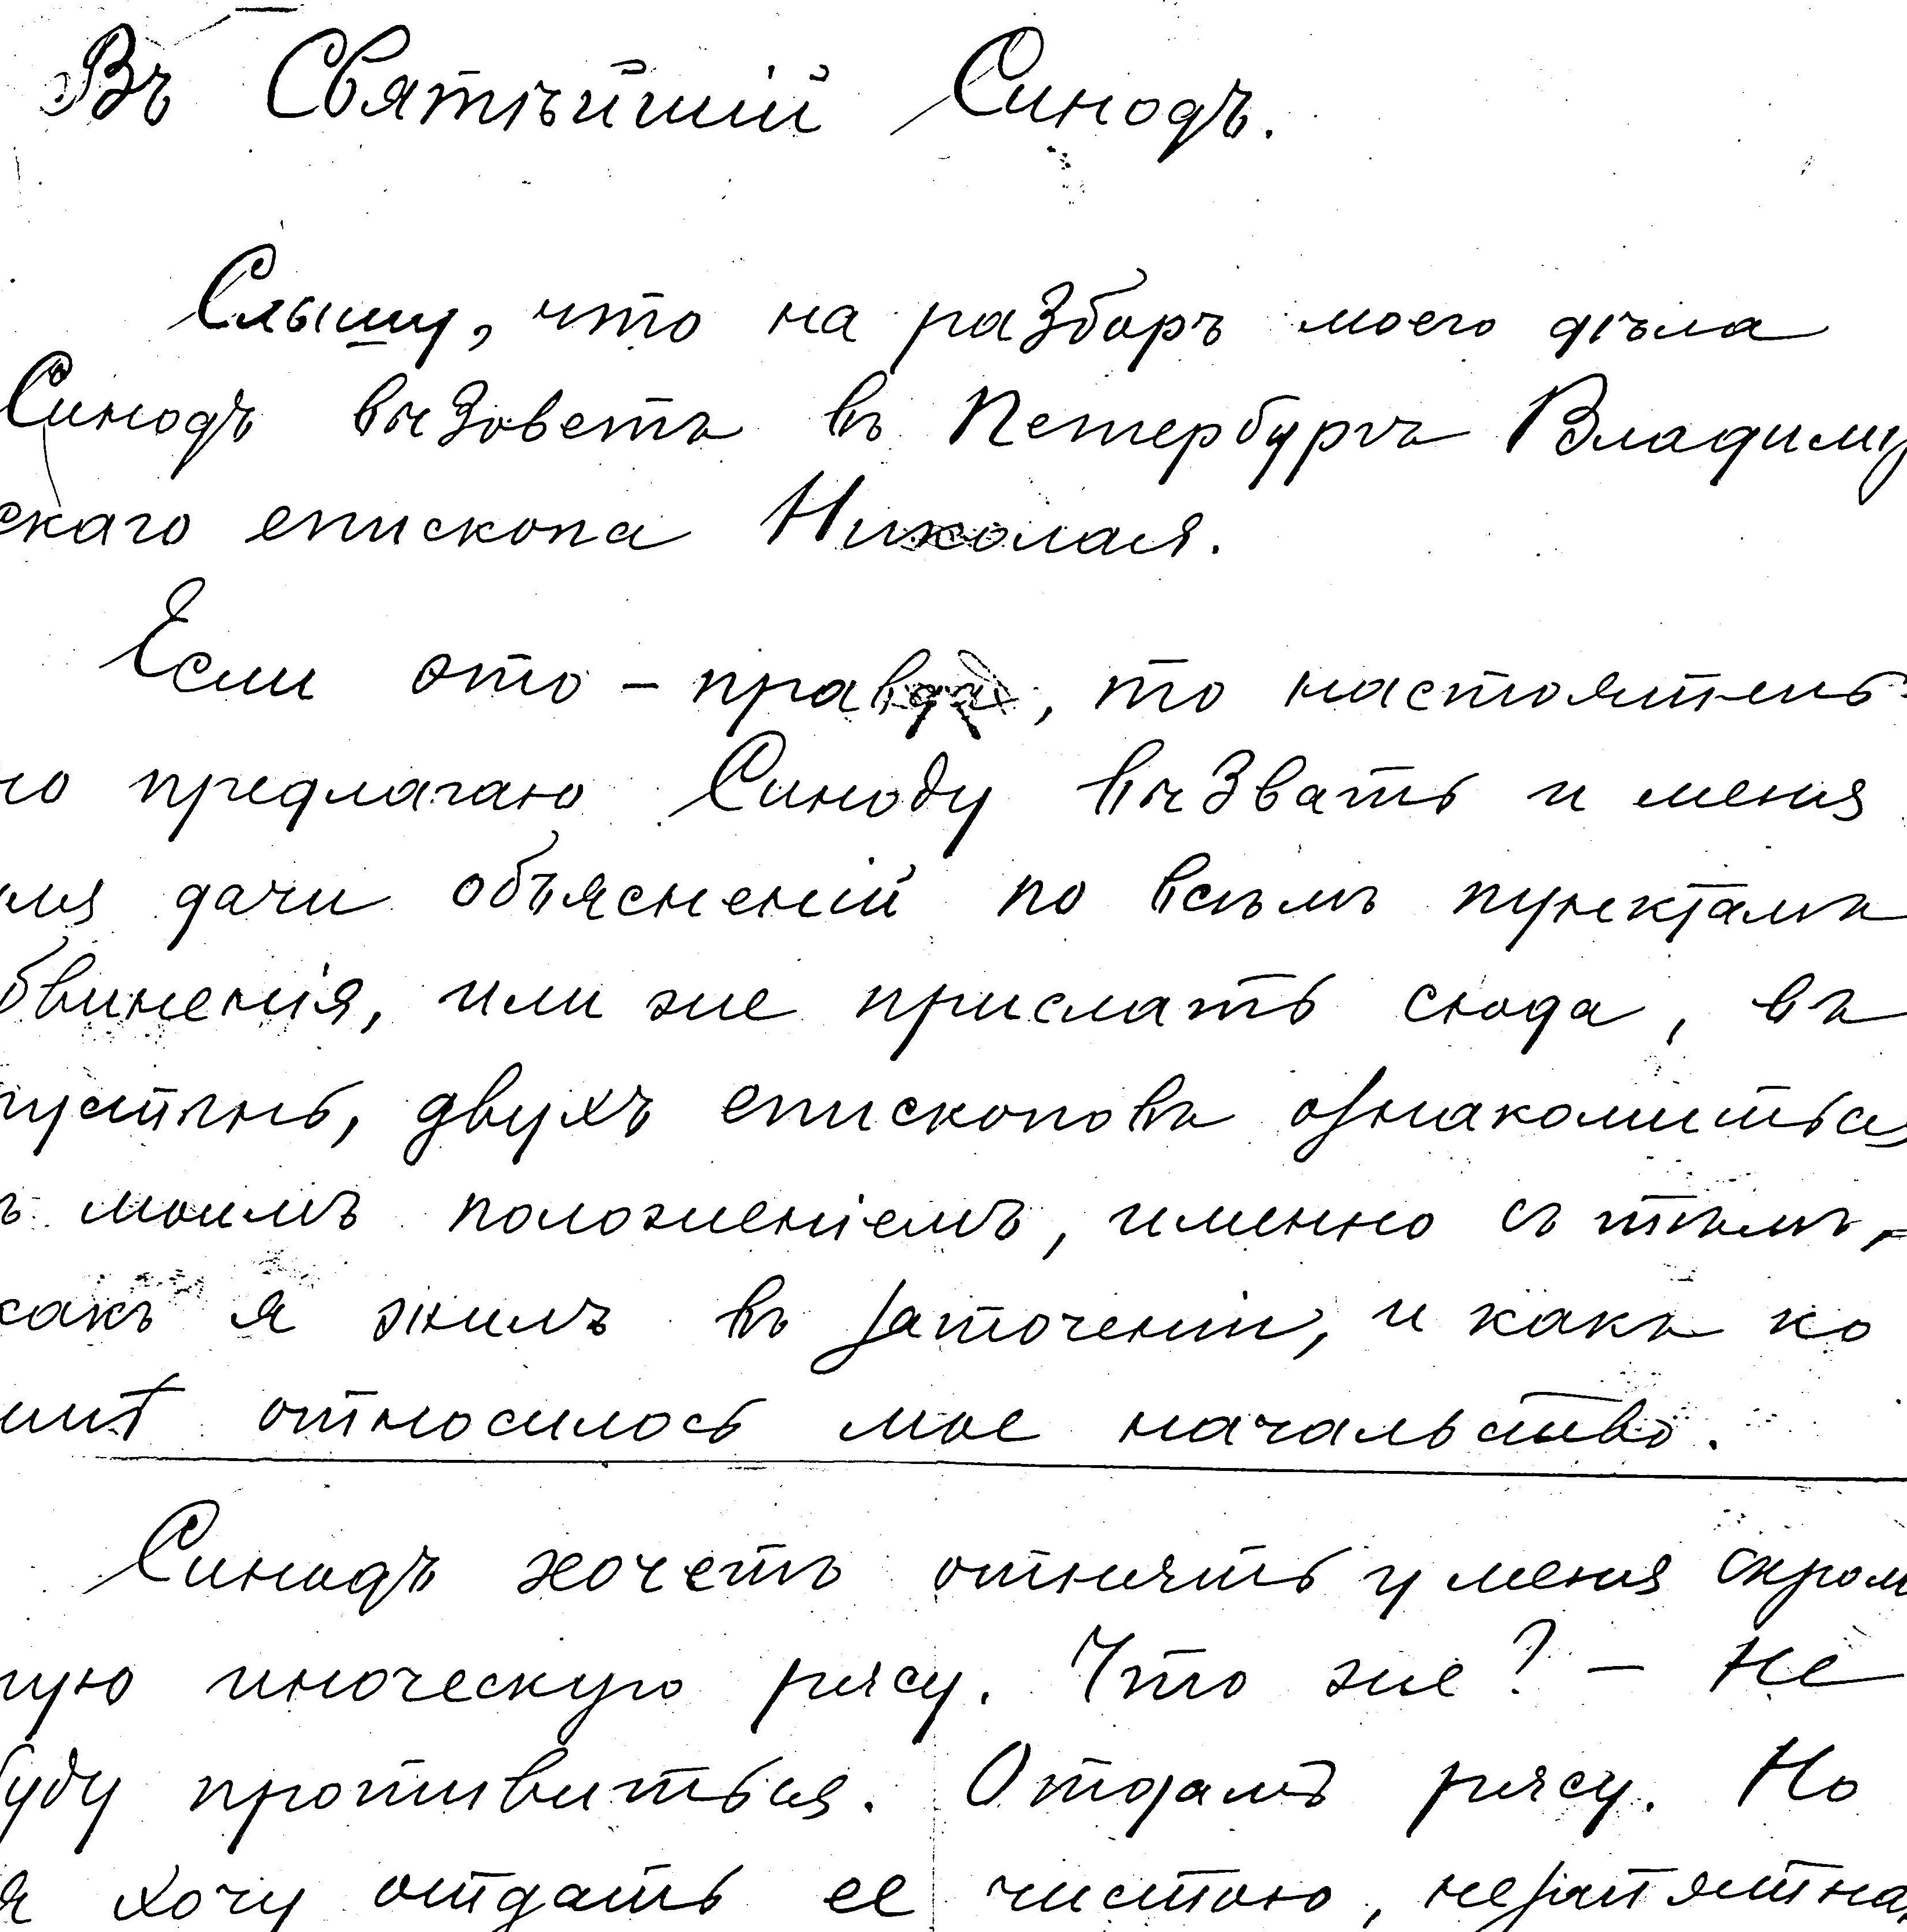 Въ Святѣйшій Синодъ.
Слышу, что на разборъ моего дѣла
Синодъ вызоветъ въ Петербургъ Владимір
скаго епископа Николая.
Если это – правда, то настоятель-
но предлагаю Синоду вызвать и меня
для дачи объясненій по всѣмъ пунктамъ
обвиненія, или же прислать сюда, въ
пустынь, двухъ епископовъ ознакомиться
съ моимъ положеніемъ, именно съ тѣмъ,
какъ я жилъ въ заточеніи, и какъ ко
мнѣ относилось мое начальство.
Синодъ хочетъ отнять у меня скром
ную иноческую рясу. Что же? – Не
буду противиться. Отдамъ рясу. Но
я хочу отдать ее чистою, незапятна